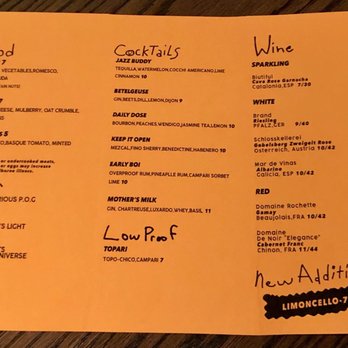 od
7
VEGETABLES,ROMESCO,
TAIN NUTS!
7
CHEESE, MULBERRY, OAT CRUMBLE,
S 5
O,BASQUE TOMATO, MINTED
or undercooked meats,
or eggs may increase
illness.
RIOUS P.O.G
'S LIGHT
'S
NIVERSE
CockTails
JAZZ BUDDY
TEQUILLA,WATERMELON,COCCHI AMERICANO,LIME
CINNAMON 10
BETELGEUSE
GIN,BEETS,DILL,LEMON,DIJON 9
DAILY DOSE
BOURBON,PEACHES,WENDIGO,JASMINE TEA,LEMON 10
KEEP IT OPEN
MEZCAL,FINO SHERRY,BENEDICTINE,HABENERO 10
EARLY BOI
OVERPROOF RUM,PINEAPLLE RUM,CAMPARI SORBET
LIME 10
MOTHER'S MILK
GIN, CHARTREUSE,LUXARDO,WHEY,BASIL 11
LowProof
TOPARI
TOPO-CHICO,CAMPARI 7
Wine
SPARKLING
Biutiful
Cava Rose Garnacha
Catalonia,ESP 7/30
WHITE
Brand
Riesling
PFALZ,GER 9/40
Schlosskellerei
Gobelsberg Zweigelt Rose
Osterreich, Austria 10/42
Mar de Vinas
Albarino
Galicia, ESP 10/42
RED
Domaine Rochette
Gamay
Beaujolais,FRA 10/42
Domaine
De Noir "Elegance"
Cabernet Franc
Chinon, FRA 11/44
New Additi
LIMONCELLO-7